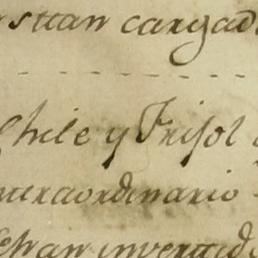 estan cargad
Chile y Frisol
extraordinario
se han invertido